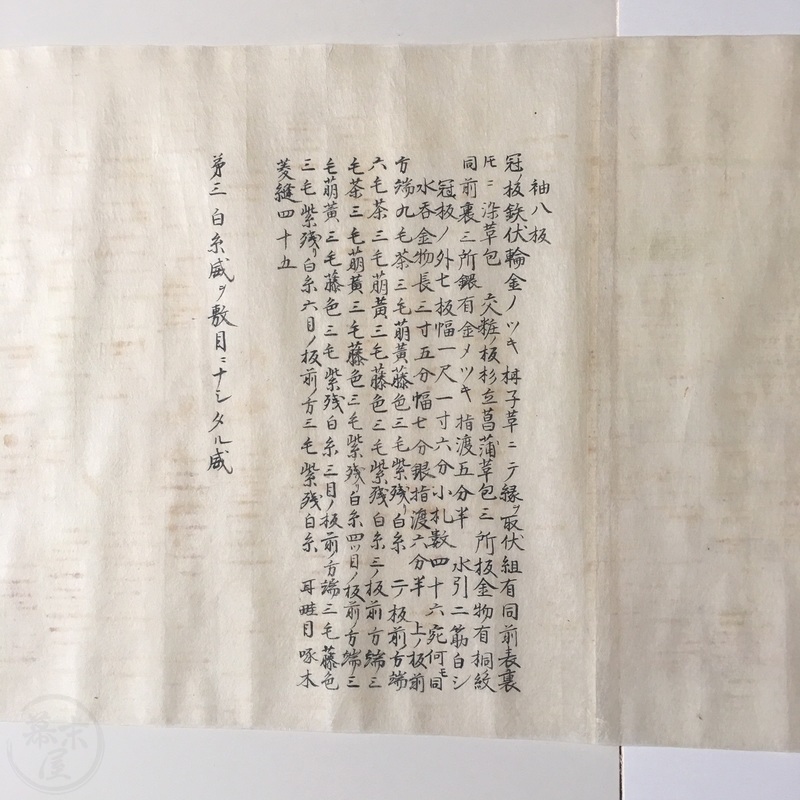 袖八板
冠ノ板鉄伏輪金ノツキ 栂子草ニテ縁ヲ取伏組有同前表裏
𪜈ニ染草包 交粧ノ板杉立菖蒲草包三所板金物有桐紋
同前裏三所銀有金メツキ 指渡五分半 水引二筋白シ
冠板ノ外七板幅一尺一寸六分小札数四十六宛何モ同
水呑金物長三寸五分幅七分銀指渡六分半 上ノ板前
方端九毛茶三毛萌黄藤色三毛紫残リ白糸 二ノ板前方端
六毛茶三毛萌黄三毛藤色三毛紫残白糸三ノ板前方端三
毛茶三毛萌黄三毛藤色三毛紫残リ白糸四ツ目ノ板前ノ方端三
毛萌黄三毛藤色三毛紫残白糸三目ノ板前ノ方端三毛藤色
三毛紫残リ白糸六目ノ板前ノ方三毛紫残白糸 耳畦目啄木
菱縫四十五
第三 白糸威ヲ敷目ニナシタル威
幕末屋